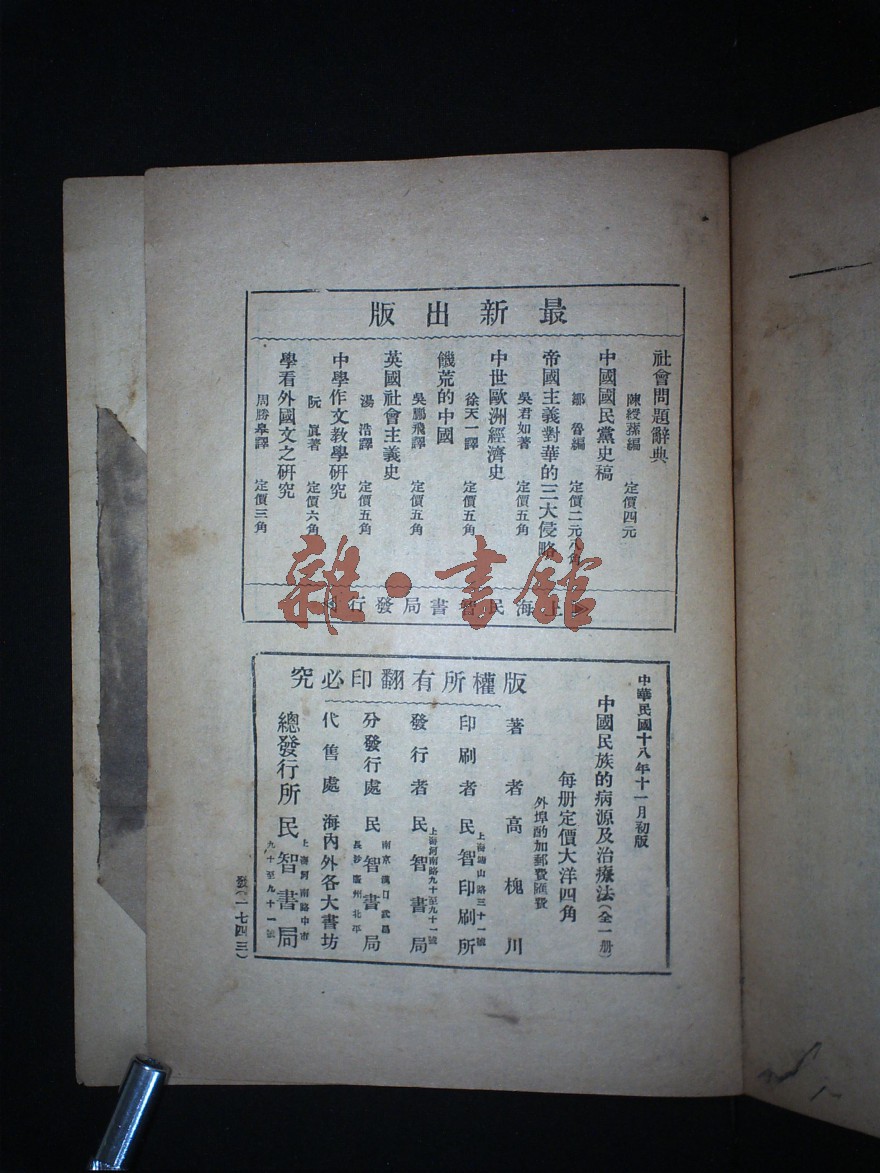 最新出版
社會問題辭典
陳綬蓀編 定價四元
中國國民黨史稿
鄒魯編 定價二元八角
帝國主義對華的三大侵略
吳君如著 定價五角
中世歐洲經濟史
徐天一譯 定價五角
饑荒的中國
吳鵬飛譯 定價五角
英國社會主義史
湯浩譯 定價五角
中學作文教學研究
阮眞著 定價六角
學看外國文之研究
周勝皋譯 定價三角
上海民智書局發行
雜·書館
中華民國十八年十一月初版
中國民族的病源及治療法(全一册)
每册定價大洋四角
外埠酌加郵費匯費
版權所有翻印必究
著者 高槐川
印刷者 民智印刷所
上海塘山路三十一號
發行者 民智書局
上海河南路九十至九十一號
分發行處 民智書局
南京 漢口 武昌
長沙 廣州 北平
代售處 海內外各大書坊
總發行所 民智書局
上海河南路中市
九十至九十一號
發(一七四三)